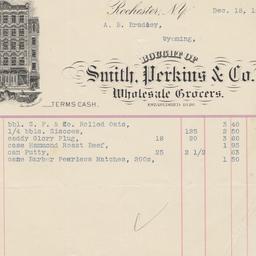 Rochester, N.Y. Dec. 18, 1
A. B. Bradley,
Wyoming,
BOUGHT OF
Smith, Perkins & Co.
Wholesale Grocers.
TERMS CASH. ESTABLISHED 1826.
bbl. S. P. & Co. Rolled Oats, 3 40
1/4 bbls. 125 2 50
caddy Glory Plug, 18 20 3 60
case Hammond Roast Beef, 1 95
can Putty, 25 2 1/2 63
case Barber Peerless Matches, 200s, 1 50